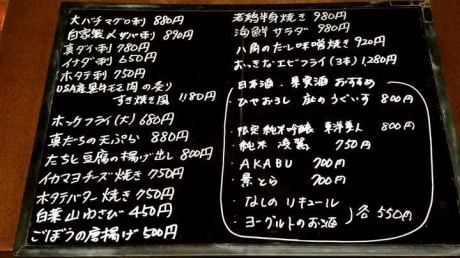 大バチマグロ刺 880円
自家製〆サバ刺 890円
真ダイ刺 780円
イナダ刺 650円
ホタテ刺 750円
USA産黒牛モモ肉の炙り
すき焼き風 1,180円
ホッケフライ(大) 680円
真だちの天ぷら 880円
たちと豆腐の揚げ出し 800円
イカマヨチーズ焼き 750円
ホタテバター焼き 750円
白葉山わさび 450円
ごぼうの唐揚げ 500円
若鶏半身焼き 980円
海鮮サラダ 980円
八角のたし味噌焼き 920円
おっきなエビフライ(3本) 1,280円
日本酒・果実酒 おすすめ
・ひやおろし 庭のうぐいす 800円
・限定 純米吟醸 東洋美人 800円
・純米 凌駕 750円
・AKABU 700円
・景とら 700円
・なしの リキュール
・ヨーグルトのお酒 各 550円